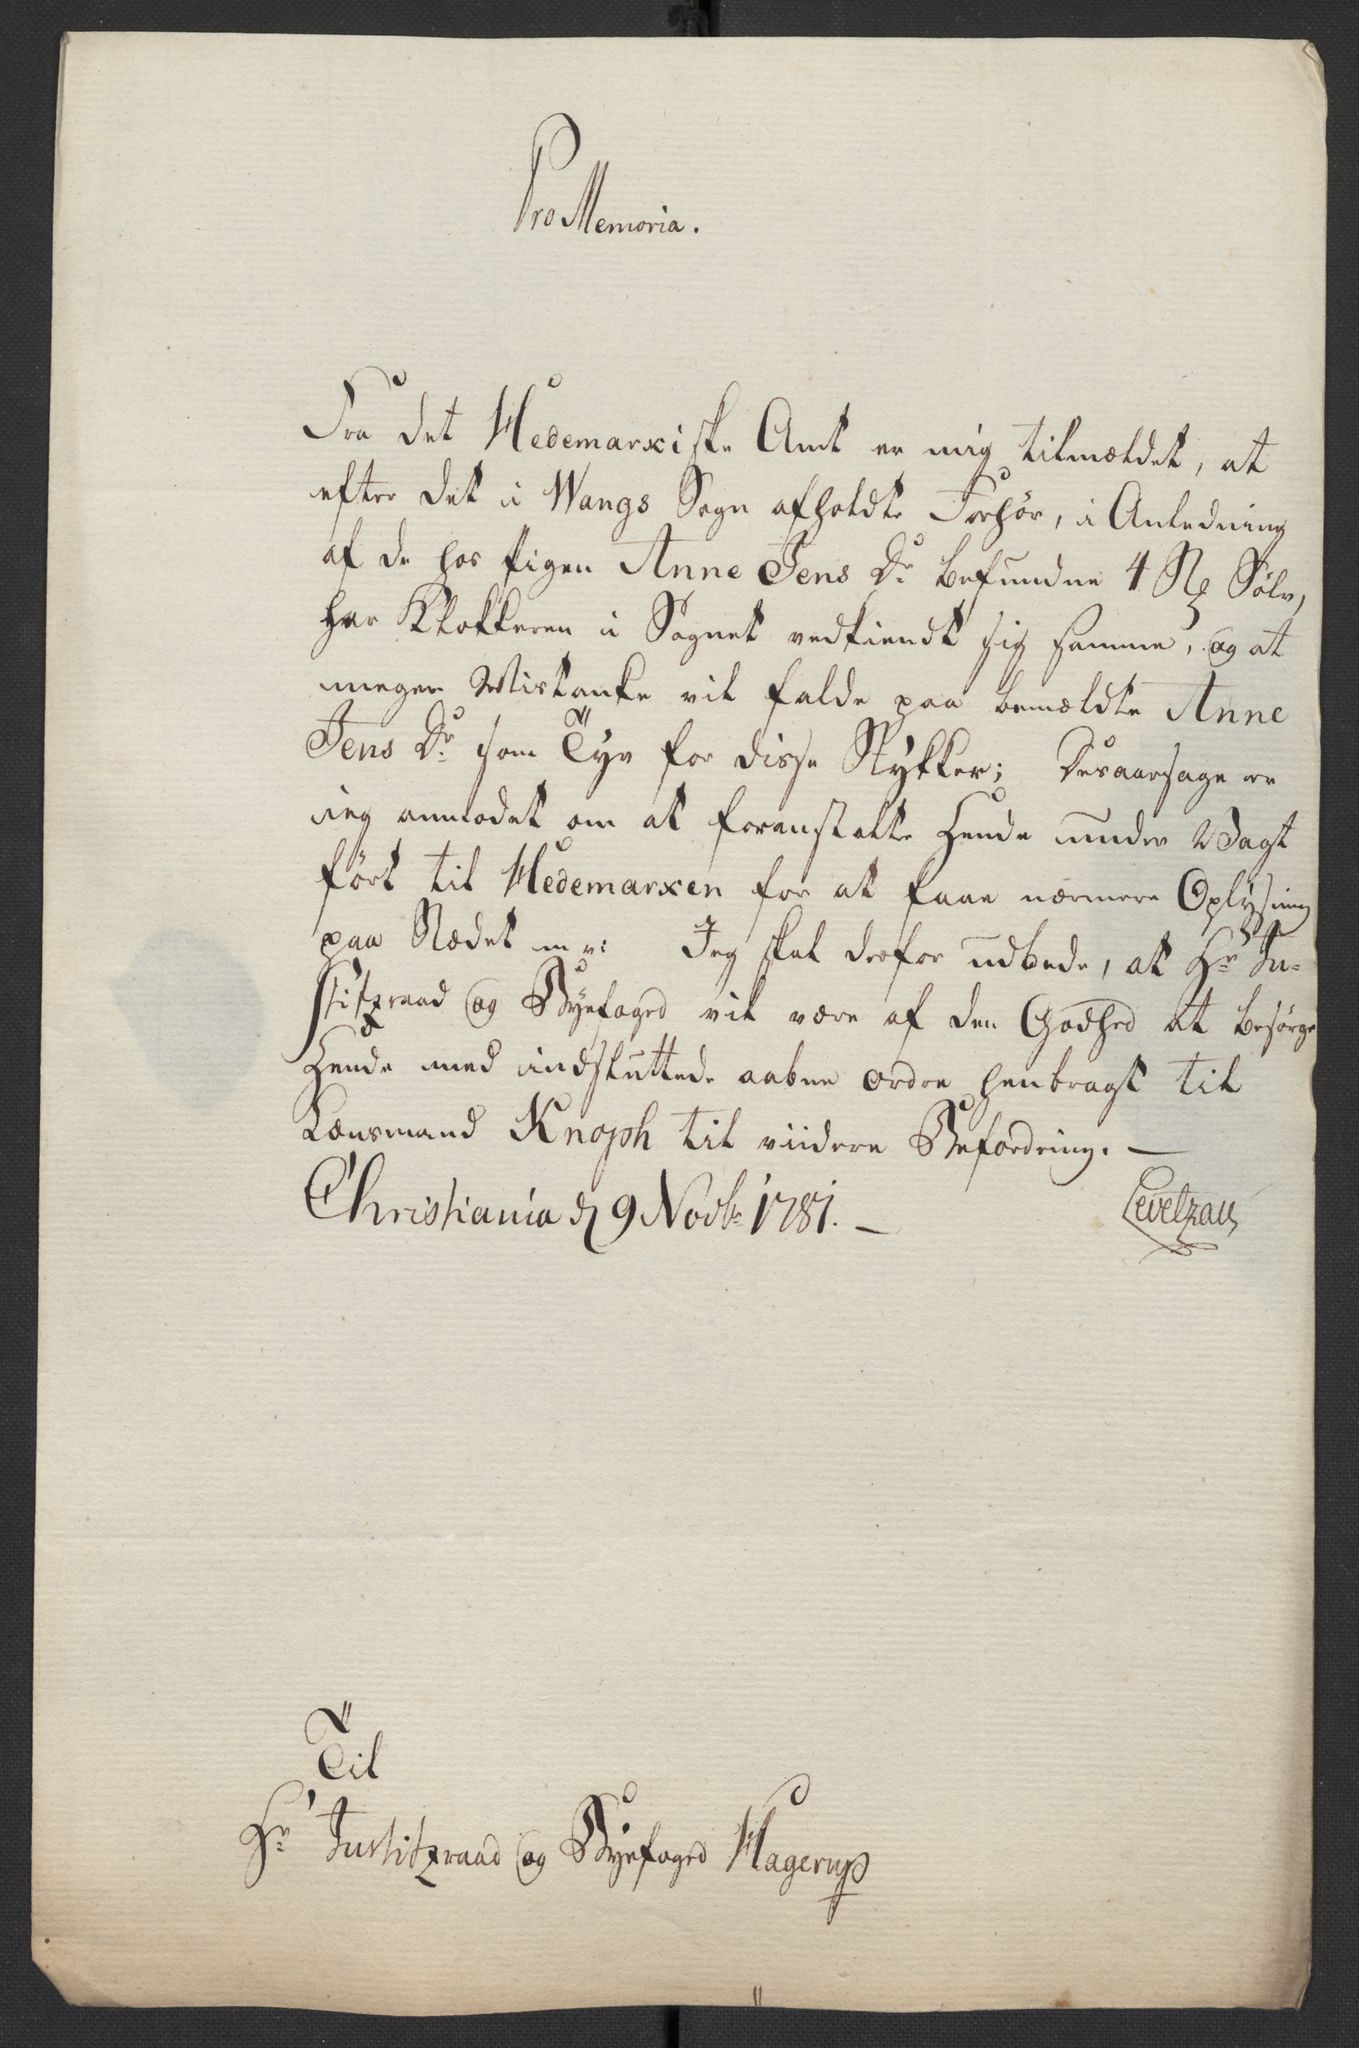 Pro Memoria.
Fra det Hedemarxiske Amt er mig tilmældet, at
efter det i Wangs Sogn afholdte Forhør, i Anledning
af de hos Pigen Anne Jens Dr befundne 4 St Sølv,
har Klokkeren i Sognet vedkiendt sig samme, og at
megen Mistanke vil falde paa bemældte Anne
Jens Dr som Tyv for disse Stykker; Desaarsage er
ieg anmodet om at foranstalte Hende under Vagt
ført til Hedemarxen for at faae nærmere Oplysning
paa Stædet m v: Jeg skal derfor udbede, at Hr Ju-
stitzraad og Byefoged vil være af den Godhed at besørge
Hende med indsluttede aabne Ordre henbragt til
Lænsmand Knoph til viidere Befordring. —
Christiania d 9 Novbr 1781. — Levetzau
Til
Hr Justitzraad og Byefoged Hagerup